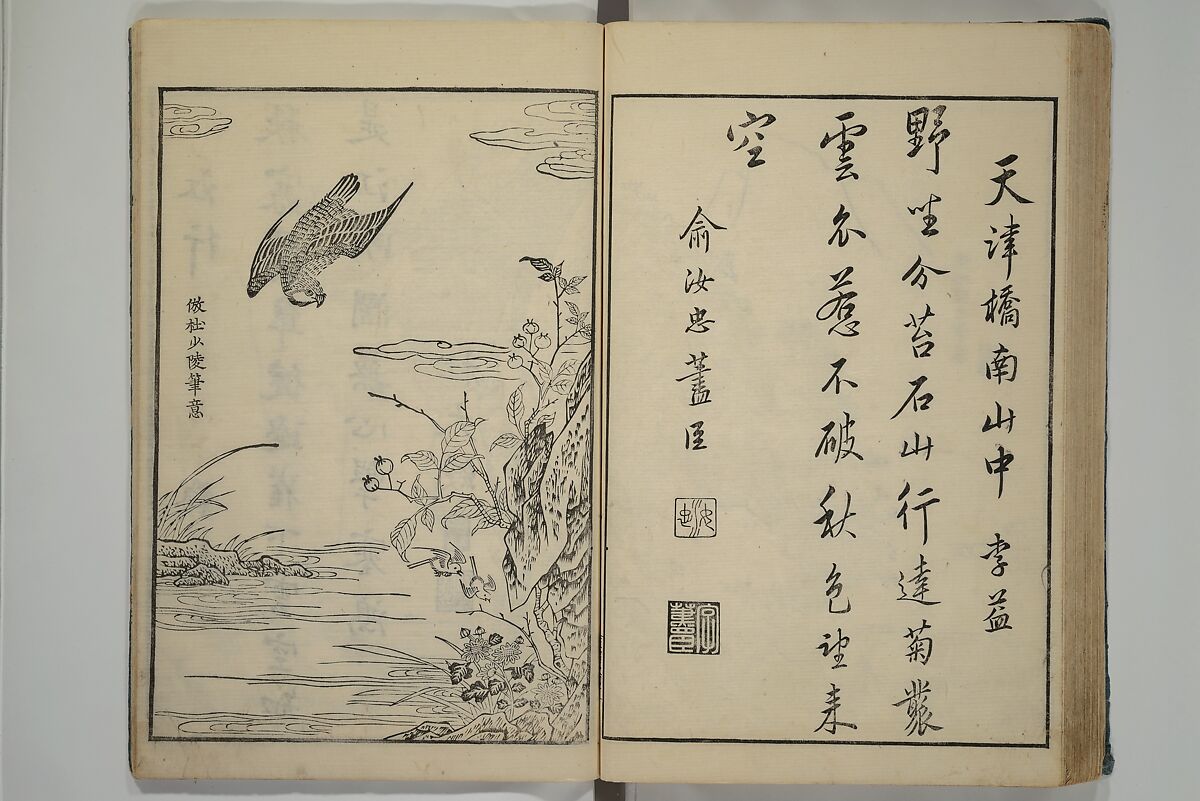 天津橋南山中 李益
野坐分苔石山行遶菊叢
雲衣惹不破秋色望來
空
俞汝忠藎臣
汝忠
倣杜少陵筆意